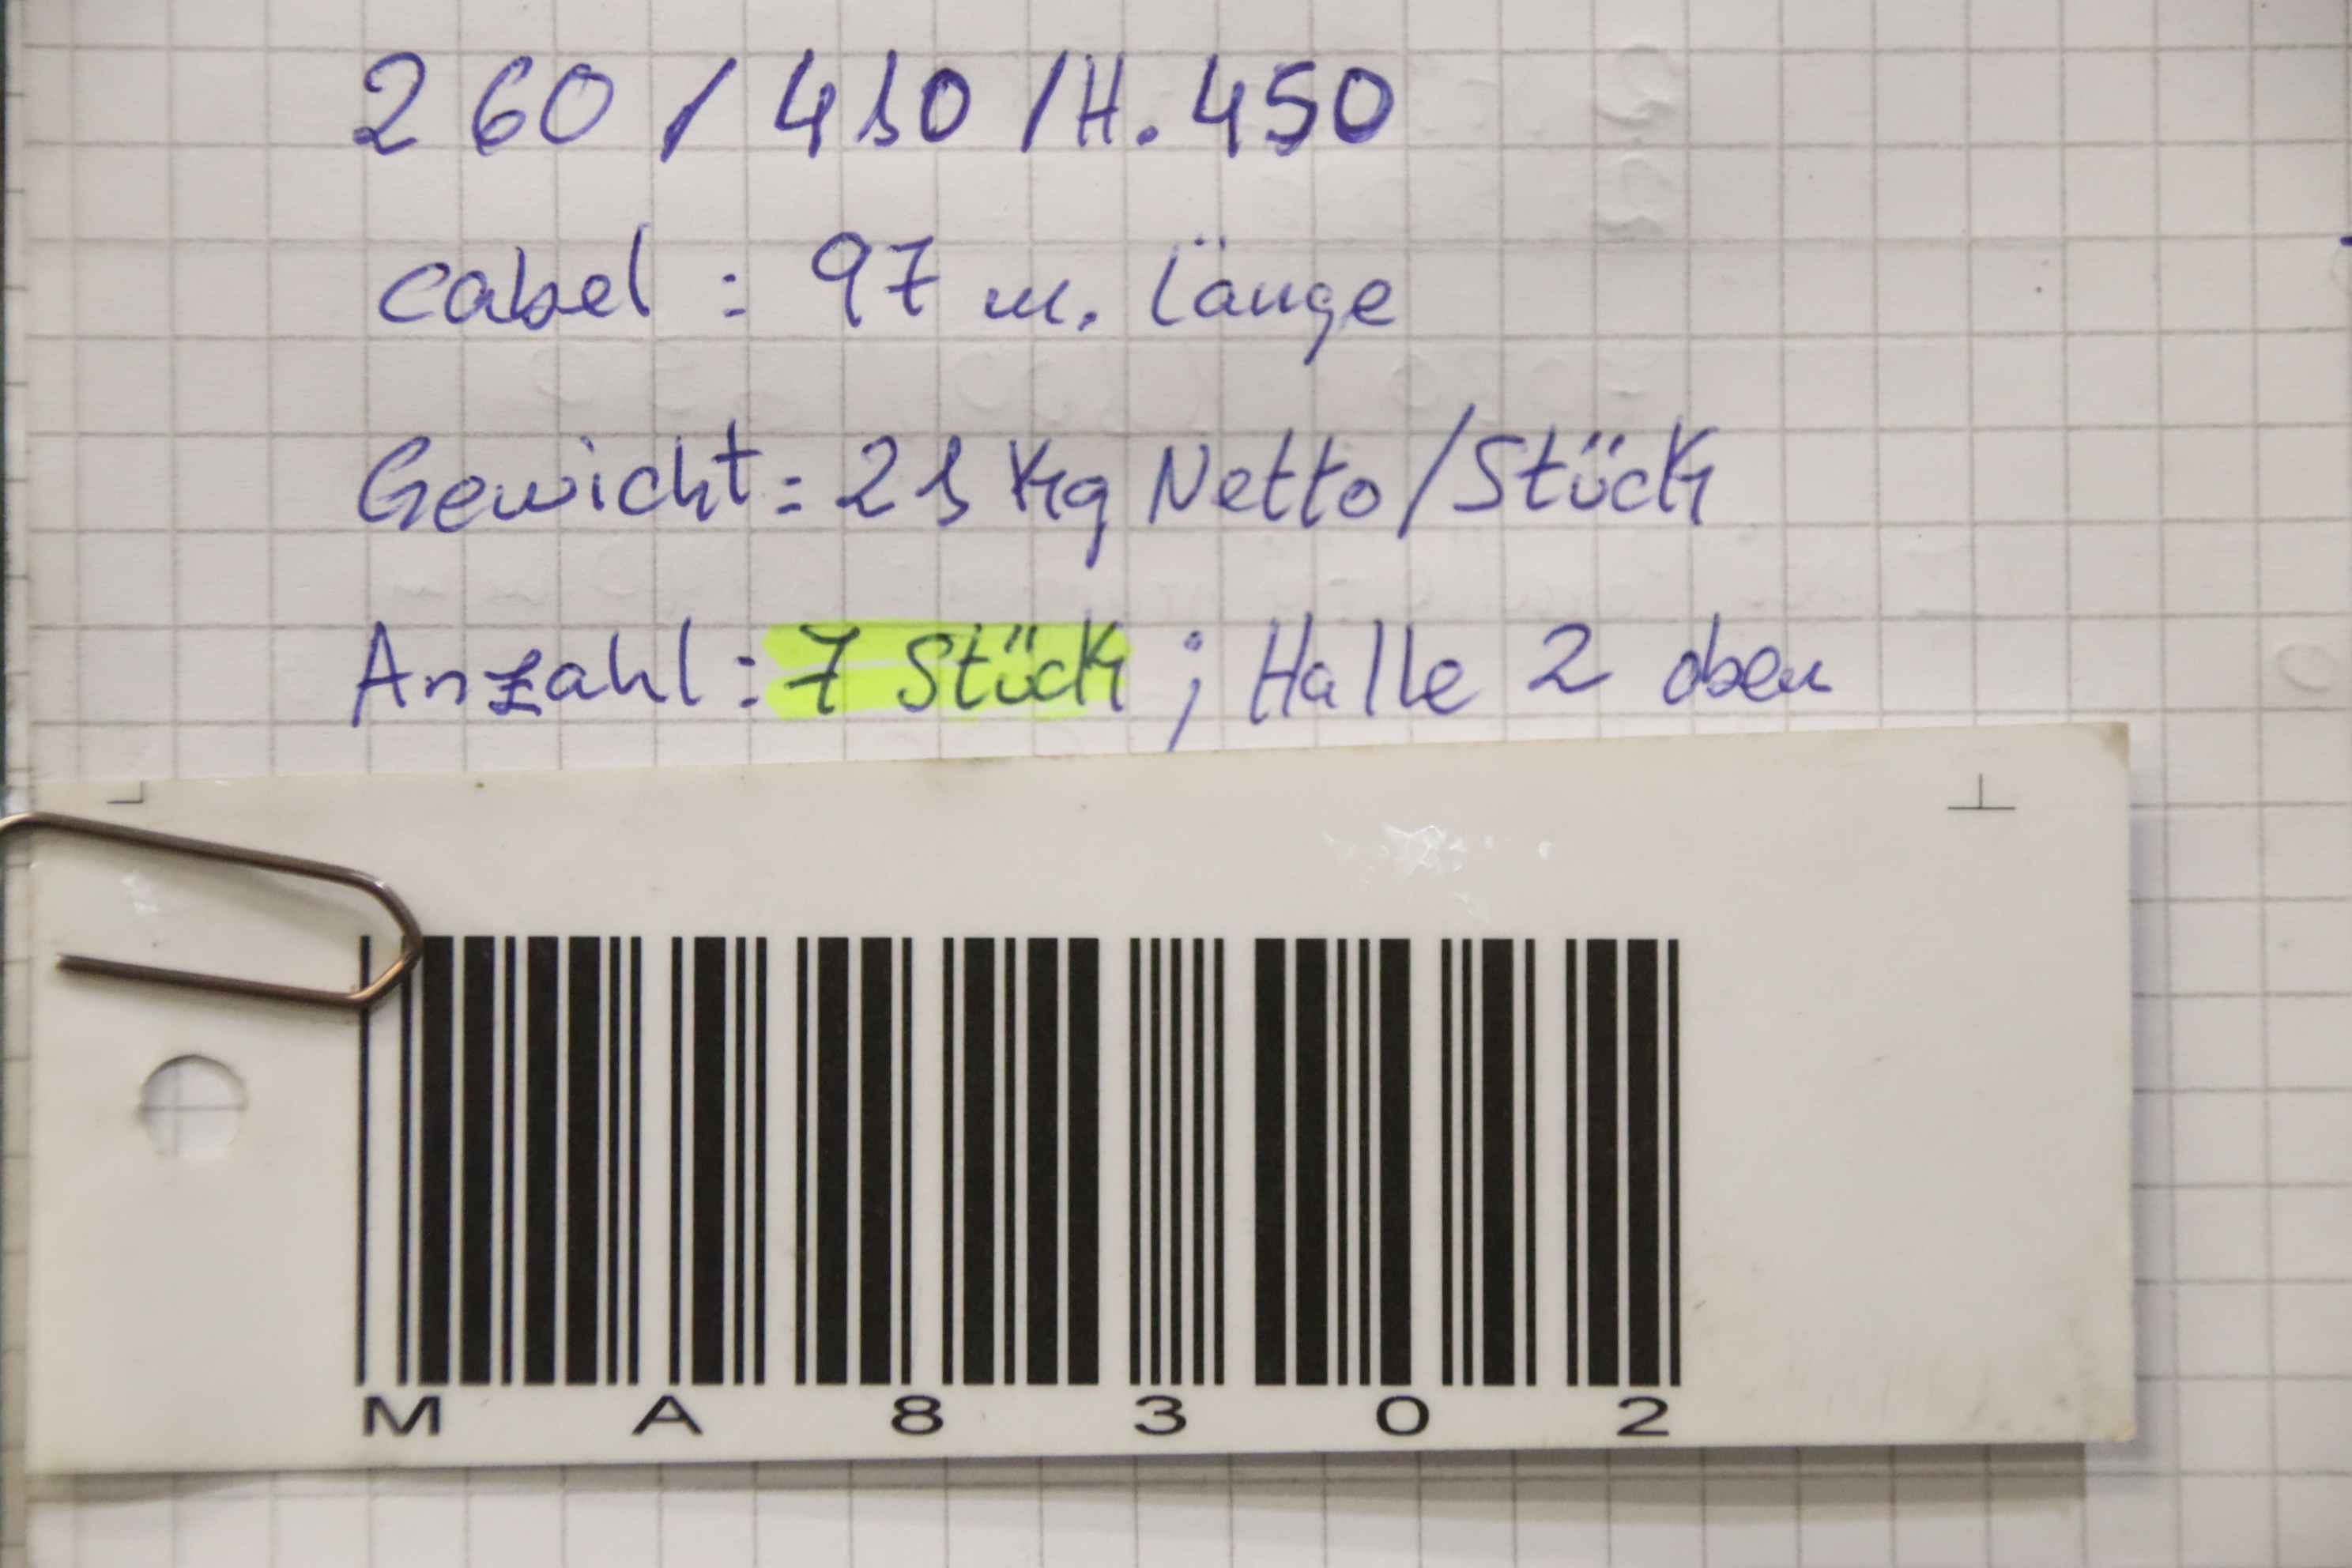 260 / 410 / H. 450
cabel : 97 m. länge
Gewicht : 21 Kg Netto/Stück
Anzahl : 7 Stück ; Halle 2 oben
MA8302